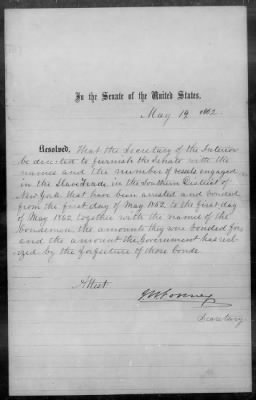 In the Senate of the United States.
May 19 1862
Resolved, That the Secretary of the Interior
be directed to furnish the Senate with the
names and the number of vessels engaged
in the Slave Trade, in the Southern District of
New York that have been arrested and bonded
from the first day of May 1852, to the first day
of May 1862, together with the names of the
bondsmen, the amounts they were bonded for,
and the amount the Government has real-
ized by the forfeiture of those bonds.
Attest
J W Forney
Secretary